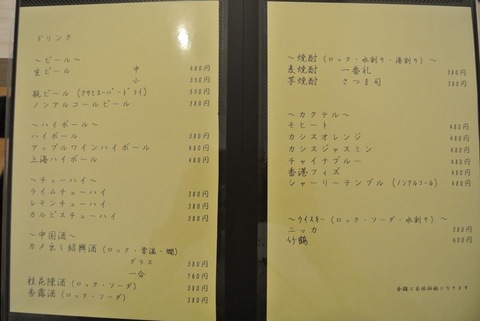 ドリンク
～ビール～
生ビール 中 480円
小 350円
瓶ビール (アサヒスーパードライ) 550円
ノンアルコールビール 380円
～ハイボール～
ハイボール 380円
アップルワインハイボール 480円
上海ハイボール 480円
～チューハイ～
ライムチューハイ 380円
レモンチューハイ 380円
カルピスチューハイ 380円
～中国酒～
カメ出し紹興酒 (ロック・常温・燗)
グラス 380円
一合 760円
桂花陳酒 (ロック・ソーダ) 380円
杏露酒 (ロック・ソーダ) 380円
～焼酎 (ロック・水割り・湯割り) ～
麦焼酎 一番札 380円
芋焼酎 さつま司 380円
～カクテル～
モヒート 480円
カシスオレンジ 480円
カシスジャスミン 480円
チャイナブルー 480円
香港フィズ 480円
シャーリーテンプル (ノンアルコール) 480円
～ウイスキー (ロック・ソーダ・水割り) ～
ニッカ 380円
竹鶴 600円
金額は本体価格となります